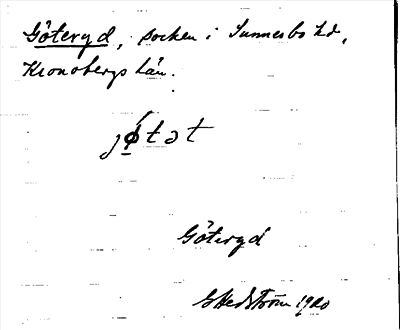 Göteryd, socken i Sunnerbo hd,
Kronobergs län.
jø̀tət
Göteryd
G Hedström 1920